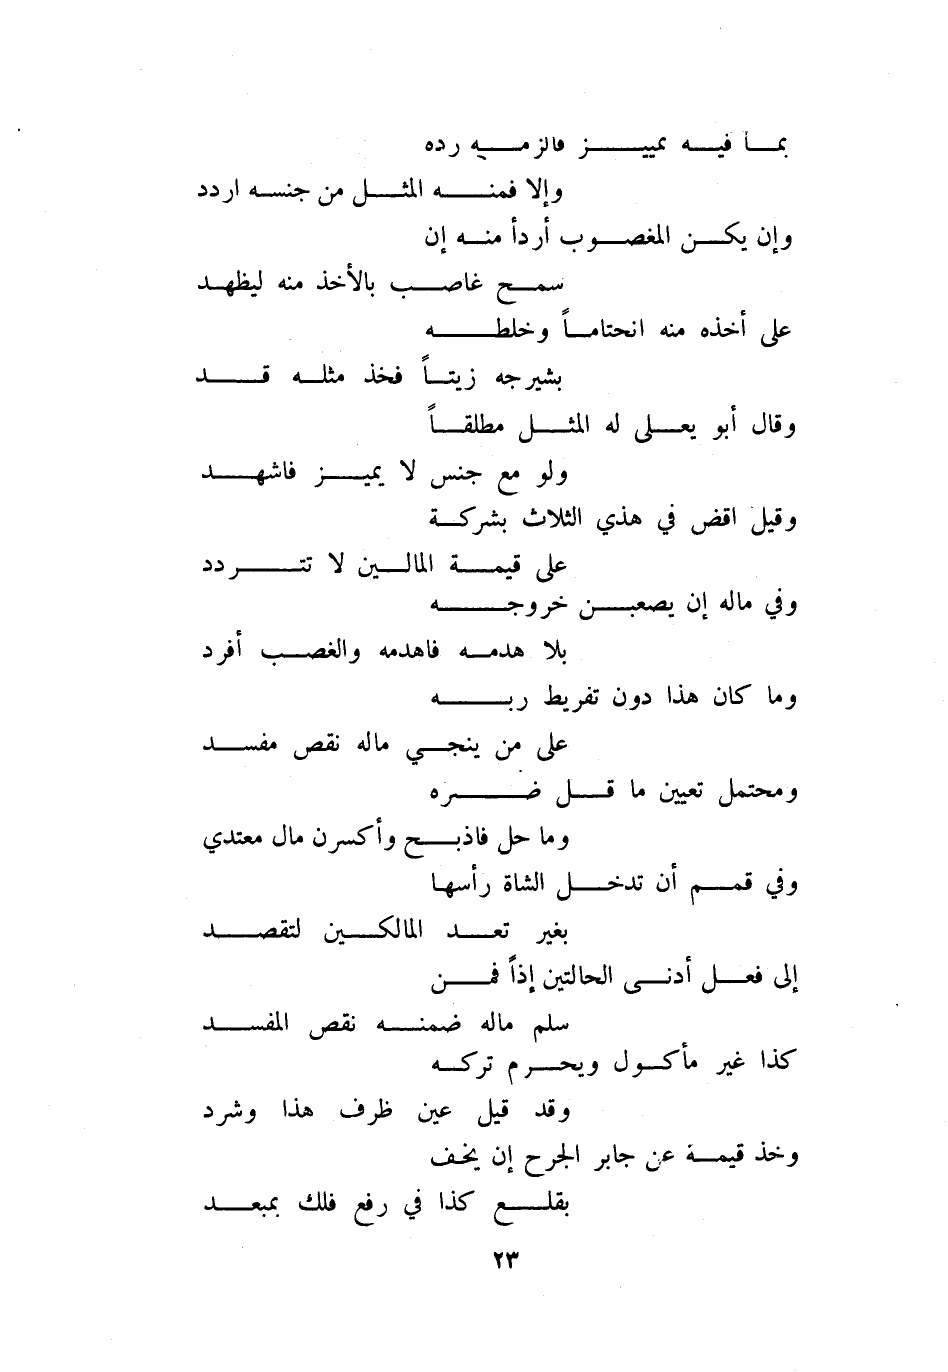 بمـا فيـه تمييـز فالزمـه رده
وإلا فمنـه المثـل من جنسه اردد
وإن يكـن المغصـوب أردأ منـه إن
سمـح غاصـب بالأخذ منه ليظهـد
على أخذه منه انحتامـاً وخلطـه
بشيرجه زيتـاً فخذ مثلـه قـد
وقال أبو يعـلى له المثـل مطلقـاً
ولو مع جنس لا يميـز فاشهـد
وقيل اقض في هذي الثلاث بشركـة
على قيمـة المالـين لا تتـردد
وفي ماله إن يصعبـن خروجـه
بلا هدمـه فاهدمه والغصـب أفرد
وما كان هذا دون تفريط ربـه
على من ينجـي ماله نقص مفسـد
ومحتمل تعيين ما قـل ضـره
وما حل فاذبـح وأكسرن مال معتدي
وفي قمـم أن تدخـل الشاة رأسها
بغير تعـد المالكـين لتقصـد
إلى فعـل أدنـى الحالتين إذاً فمـن
سلم ماله ضمنـه نقص المفسـد
كذا غير مأكـول ويحـرم تركـه
وقد قيل عين ظرف هذا وشرد
وخذ قيمـة عن جابر الجرح إن يخف
بقلـع كذا في رفع فلك بمبعـد
٢٣